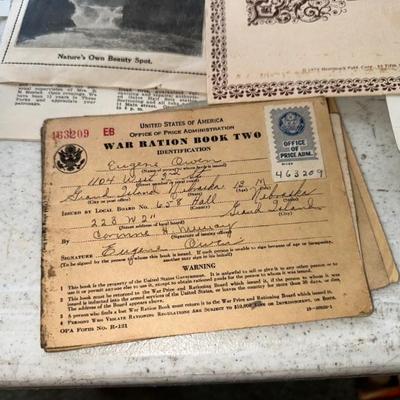 Nature's Own Beauty Spot.
463209 EB
UNITED STATES OF AMERICA
OFFICE OF PRICE ADMINISTRATION
WAR RATION BOOK TWO
IDENTIFICATION
OFFICE
OF
PRICE ADM.
463209
Eugene Owen
1104 West 3rd St
Grand Island Nebraska 13 M
ISSUED BY LOCAL BOARD NO. 658 Hall Nebraska
223 W 2" Grand Island
By Corinne H. Murray
SIGNATURE Eugene Owen
WARNING
1 This book is the property of the United States Government. It is unlawful to sell it to any other person or to
use it or permit anyone else to use it, except to obtain rationed goods for the person to whom it was issued.
2 This book must be returned to the War Price and Rationing Board which issued it, if the person to whom it was
issued is inducted into the armed services of the United States, or leaves the country for more than 30 days, or dies.
The address of the Board appears above.
3 A person who finds a lost War Ration Book must return it to the War Price and Rationing Board which issued it.
4 PERSONS WHO VIOLATE RATIONING REGULATIONS ARE SUBJECT TO $10,000 FINE OR IMPRISONMENT, OR BOTH.
OPA Form No. R-121